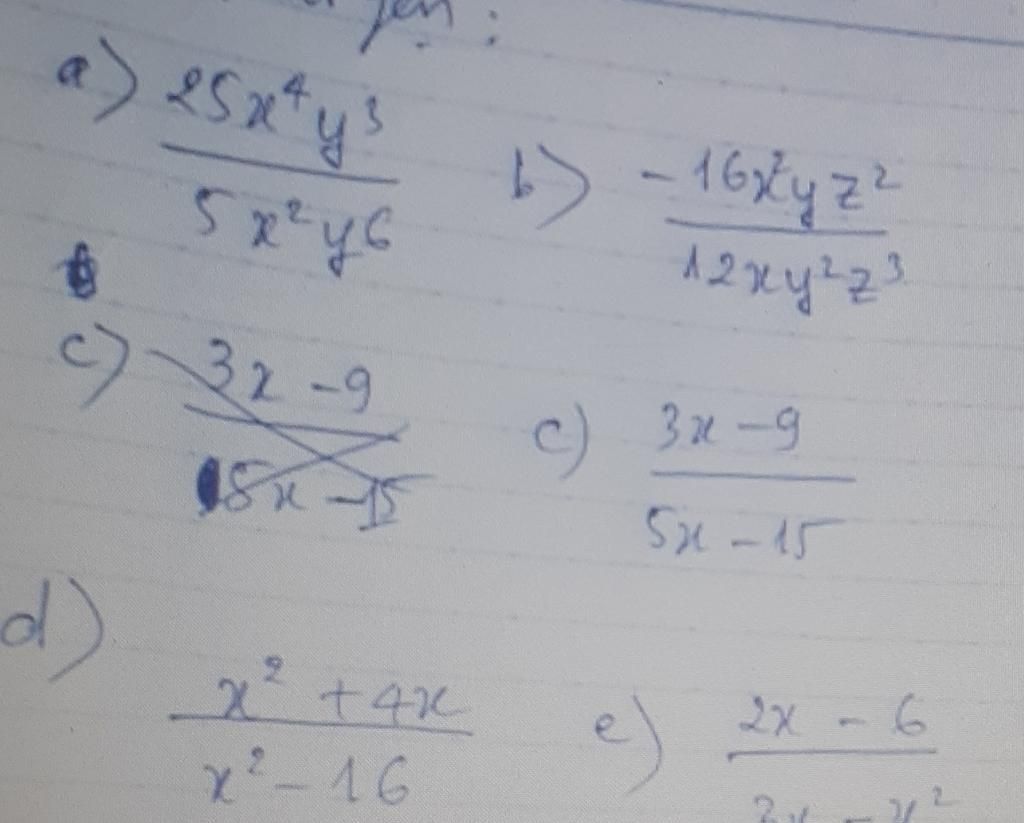 a) 25x⁴y³ / 5x²y6
b) -16x²yz² / 12xy²z³
c) 3x - 9 / 5x - 15
c) 3x - 9 / 5x - 15
d) x² + 4x / x² - 16
e) 2x - 6